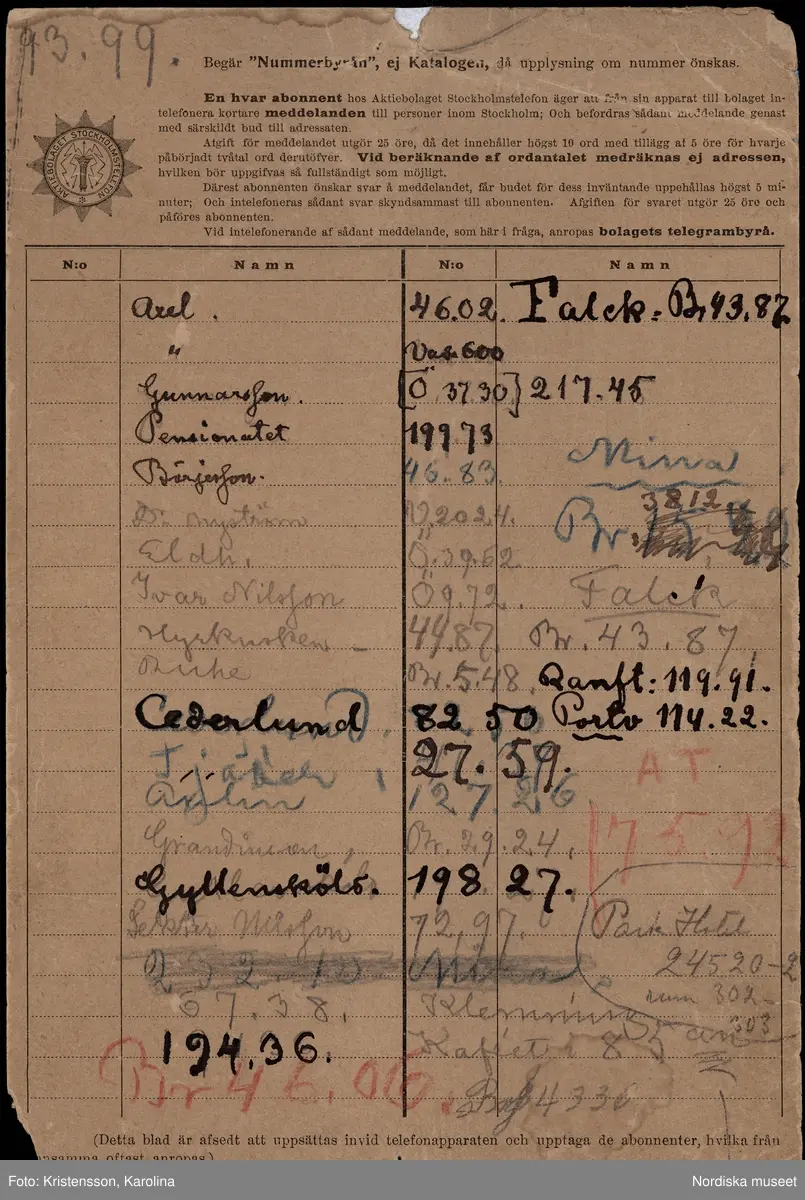 43.99.
Begär "Nummerbyrån", ej Katalogen, då upplysning om nummer önskas.
En hvar abonnent hos Aktiebolaget Stockholmstelefon äger att från sin apparat till bolaget in-
telefonera kortare meddelanden till personer inom Stockholm; Och befordras sådant meddelande genast
med särskildt bud till adressaten.
Afgift för meddelandet utgör 25 öre, då det innehåller högst 10 ord med tillägg af 5 öre för hvarje
påbörjadt tvåtal ord derutöfver. Vid beräknande af ordantalet medräknas ej adressen,
hvilken bör uppgifvas så fullständigt som möjligt.
Därest abonnenten önskar svar å meddelandet, får budet för dess inväntande uppehållas högst 5 mi-
nuter; Och intelefoneras sådant svar skyndsammast till abonnenten. Afgiften för svaret utgör 25 öre och
påföres abonnenten.
Vid intelefonerande af sådant meddelande, som här i fråga, anropas bolagets telegrambyrå.
AKTIEBOLAGET STOCKHOLMSTELEFON
N:o Namn N:o Namn
Axel. 46.02. Falck: Br 43.87
" Vas. 600
Gunnarsson. [Ö 37 30] 217.45
Pensionatet 199 73
Börjesson. 46.83. Mina
Dr Nyström V. 2024. 3812.
Eldh. Ö. 39.62 Br.
Ivar Nilsson Ö 9.72. Falck
Hyrkusken 44.87. Br. 43.87
Ruhe Br. 5.48. Ranft: 119.91.
Cederlund 82 50 Porto 114.22.
27.59. AT
127.26.
Grandinson, Br. 29.24. 175.92
Gyllensköld. 198 27.
Nilsson 72.97. Park Hotel
232 10 24520-2
67.38. rum 302-
303
194.36. 85
Br 46.06. 4336
(Detta blad är afsedt att uppsättas invid telefonapparaten och upptaga de abonnenter, hvilka från
ensamma oftast anropas.)
Foto: Kristensson, Karolina
Nordiska museet